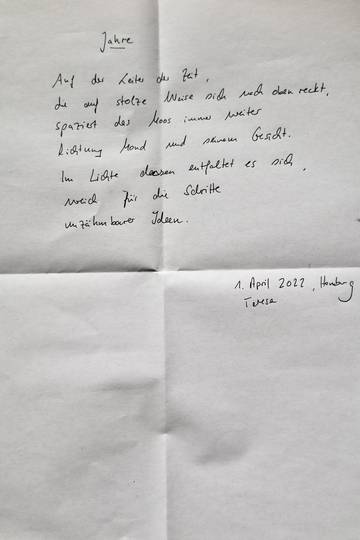 Jahre
Auf der Leiter der Zeit,
die auf stolze Weise sich nach oben reckt,
spaziert das Moos immer weiter
Richtung Mond und seinem Gesicht.
Im Lichte dessen entfaltet es sich,
weich für die Schritte
unzähmbarer Ideen.
1. April 2022, Hamburg
Teresa